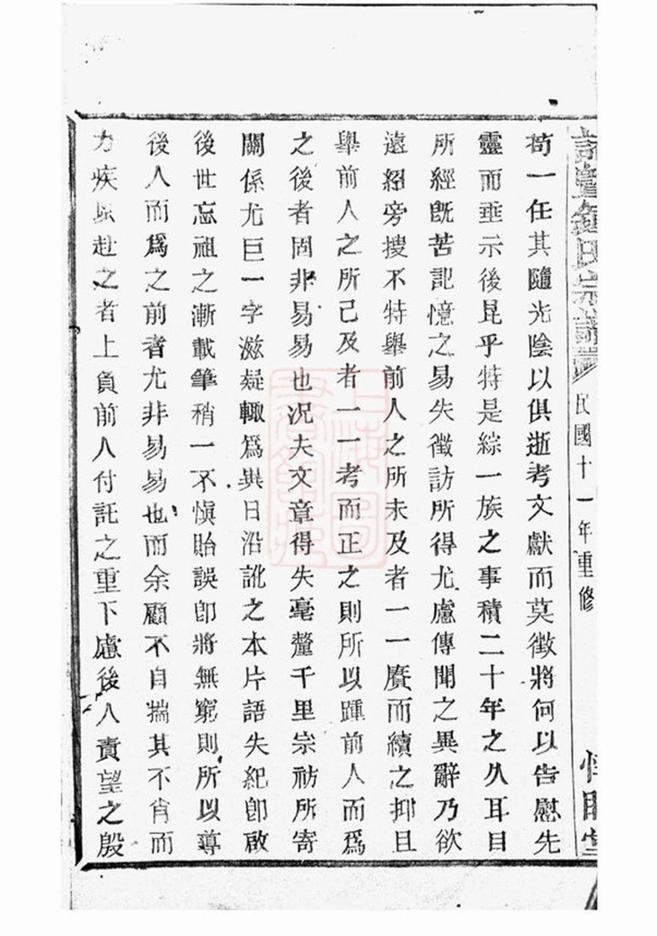 苟一任其隨光陰以俱逝考文獻而莫徵將何以告慰先
靈而垂示後昆乎特是綜一族之事積二十年之久耳目
所經旣苦記憶之易失徵訪所得尤慮傳聞之異辭乃欲
遠紹旁搜不特舉前人之所未及者一一賡而續之抑且
舉前人之所已及者一一考而正之則所以踵前人而爲
之後者固非易易也况夫文章得失毫釐千里宗祊所寄
關係尤巨一字滋疑輙爲異日沿訛之本片語失紀卽啟
後世忘祖之漸載筆稍一不愼貽誤卽將無窮則所以導
後人而爲之前者尤非易易也而余顧不自揣其不肖而
力疾以赴之者上負前人付託之重下慮後人責望之殷
氏宗譜
民國十一年重修
堂
上海圖書館藏